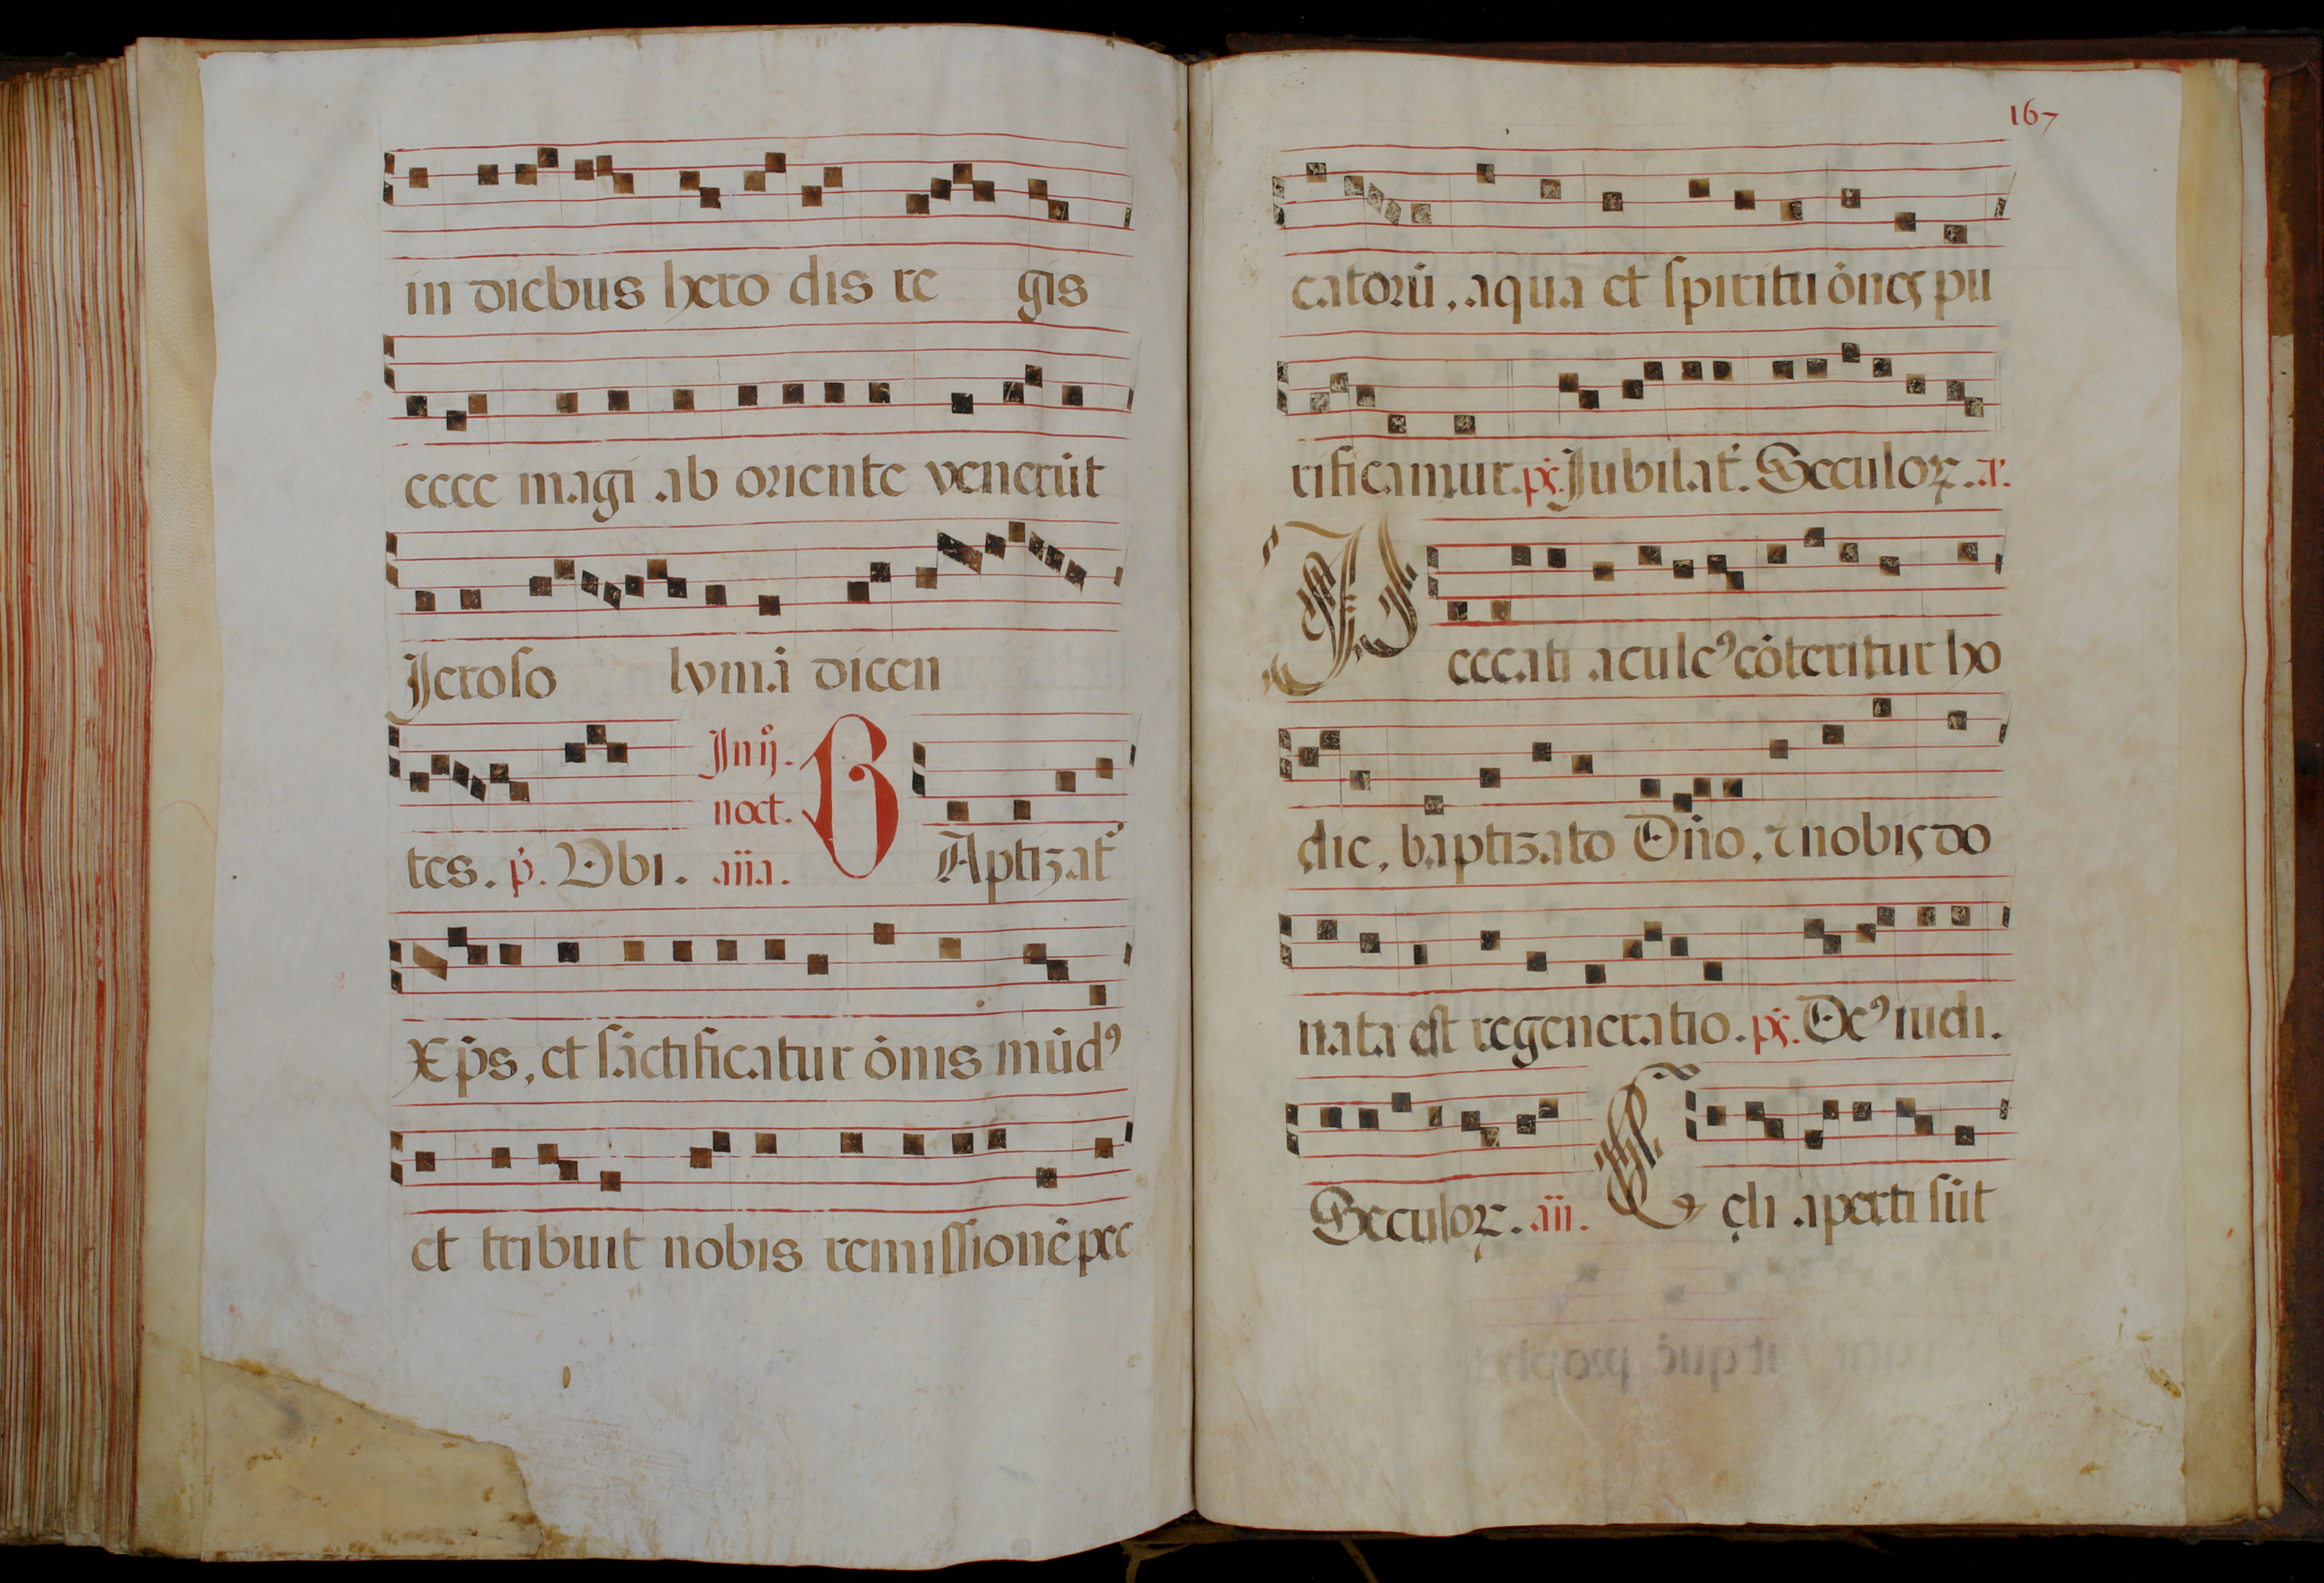 in diebus hero dis re gis
ecce magi ab oriente venerūt
Jeroso lymā dicen
tes. p̄. Vbi. ana. In ij. noct. BAptizat᷑
Xp̄s, et sāctificatur ōnis mūdꝰ
et tribuit nobis remissionē pec
167
catorū, aqua et spiritu ōnes pu
rificamur. ps̄. Jubilat᷑. Seculoꝝ. a᷑.
Peccati aculeꝰ cōteritur ho
die, baptizato Dn̄o, ⁊ nobis do
nata est regeneratio. ps̄. Deꝰ iudi.
Seculoꝝ. an. Cęli aperti sūt